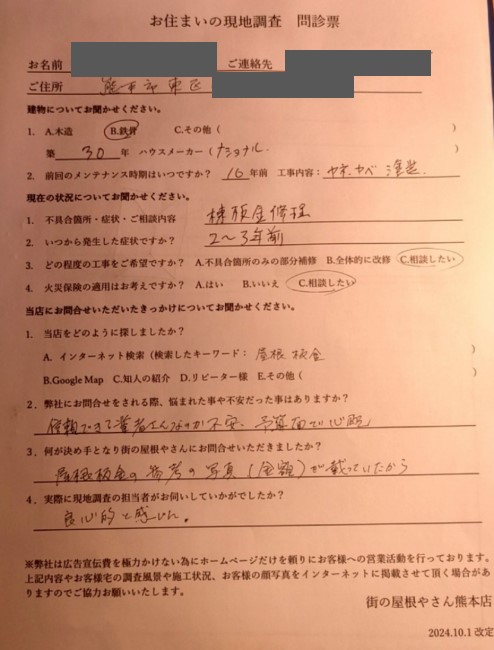 お住まいの現地調査 問診票
お名前 ご連絡先
ご住所 熊本市東区
建物についてお聞かせください。
1. A.木造 B.鉄骨 C.その他( )
築 30 年 ハウスメーカー(ナショナル. )
2. 前回のメンテナンス時期はいつですか? 16 年前 工事内容: ヤネ.カベ 塗装.
現在の状況についてお聞かせください。
1. 不具合箇所・症状・ご相談内容 棟板金修理
2. いつから発生した症状ですか? 2〜3年前
3. どの程度の工事をご希望ですか? A.不具合箇所のみの部分補修 B.全体的に改修 C.相談したい
4. 火災保険の適用はお考えですか? A.はい B.いいえ C.相談したい
当店にお問合せいただいたきっかけについてお聞かせください。
1. 当店をどのように探しましたか?
A. インターネット検索(検索したキーワード: 屋根 板金 )
B.Google Map C.知人の紹介 D.リピーター様 E.その他( )
2. 弊社にお問合せをされる際、悩まれた事や不安だった事はありますか?
信頼できる業者さんなのか不安. 予算面で心配
3. 何が決め手となり街の屋根やさんにお問合せいただきましたか?
屋根板金の参考の写真(金額)が載っていたから
4. 実際に現地調査の担当者がお伺いしていかがでしたか?
良心的と感じた。
※弊社は広告宣伝費を極力かけない為にホームページだけを頼りにお客様への営業活動を行っております。
上記内容やお客様宅の調査風景や施工状況、お客様の顔写真をインターネットに掲載させて頂く場合があ
りますのでご協力お願いいたします。
街の屋根やさん熊本店
2024.10.1 改定